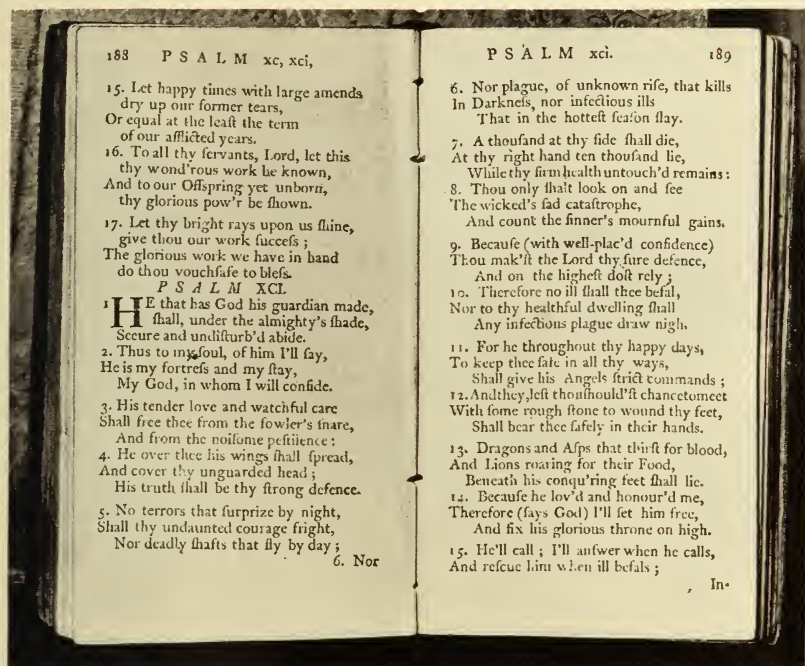 188 PSALM xc, xci,
15. Let happy times with large amends
dry up our former tears,
Or equal at the leaſt the term
of our afflicted years.
16. To all thy ſervants, Lord, let this
thy wond'rous work be known,
And to our Offspring yet unborn,
thy glorious pow'r be ſhown.
17. Let thy bright rays upon us ſhine,
give thou our work ſucceſs ;
The glorious work we have in hand
do thou vouchſafe to bleſs.
PSALM XCI.
1 HE that has God his guardian made,
ſhall, under the almighty's ſhade,
Secure and undiſturb'd abide.
2. Thus to my ſoul, of him I'll ſay,
He is my fortreſs and my ſtay,
My God, in whom I will confide.
3. His tender love and watchful care
Shall free thee from the fowler's ſnare,
And from the noiſome peſtilence :
4. He over thee his wings ſhall ſpread,
And cover thy unguarded head ;
His truth ſhall be thy ſtrong defence.
5. No terrors that ſurprize by night,
Shall thy undaunted courage fright,
Nor deadly ſhafts that fly by day ;
6. Nor
PSALM xci. 189
6. Nor plague, of unknown riſe, that kills
In Darkneſs, nor infectious ills
That in the hotteſt ſeaſon ſlay.
7. A thouſand at thy ſide ſhall die,
At thy right hand ten thouſand lie,
While thy firm health untouch'd remains :
8. Thou only ſhalt look on and ſee
The wicked's ſad cataſtrophe,
And count the ſinner's mournful gains.
9. Becauſe (with well-plac'd confidence)
Thou mak'ſt the Lord thy ſure defence,
And on the higheſt doſt rely ;
10. Therefore no ill ſhall thee befal,
Nor to thy healthful dwelling ſhall
Any infectious plague draw nigh.
11. For he throughout thy happy days,
To keep thee ſafe in all thy ways,
Shall give his Angels ſtrict commands ;
12. And they, leſt thou ſhould'ſt chance to meet
With ſome rough ſtone to wound thy feet,
Shall bear thee ſafely in their hands.
13. Dragons and Aſps that thirſt for blood,
And Lions roaring for their Food,
Beneath his conqu'ring feet ſhall lie.
14. Becauſe he lov'd and honour'd me,
Therefore (ſays God) I'll ſet him free,
And fix his glorious throne on high.
15. He'll call ; I'll anſwer when he calls,
And reſcue him when ill befals ;
In-